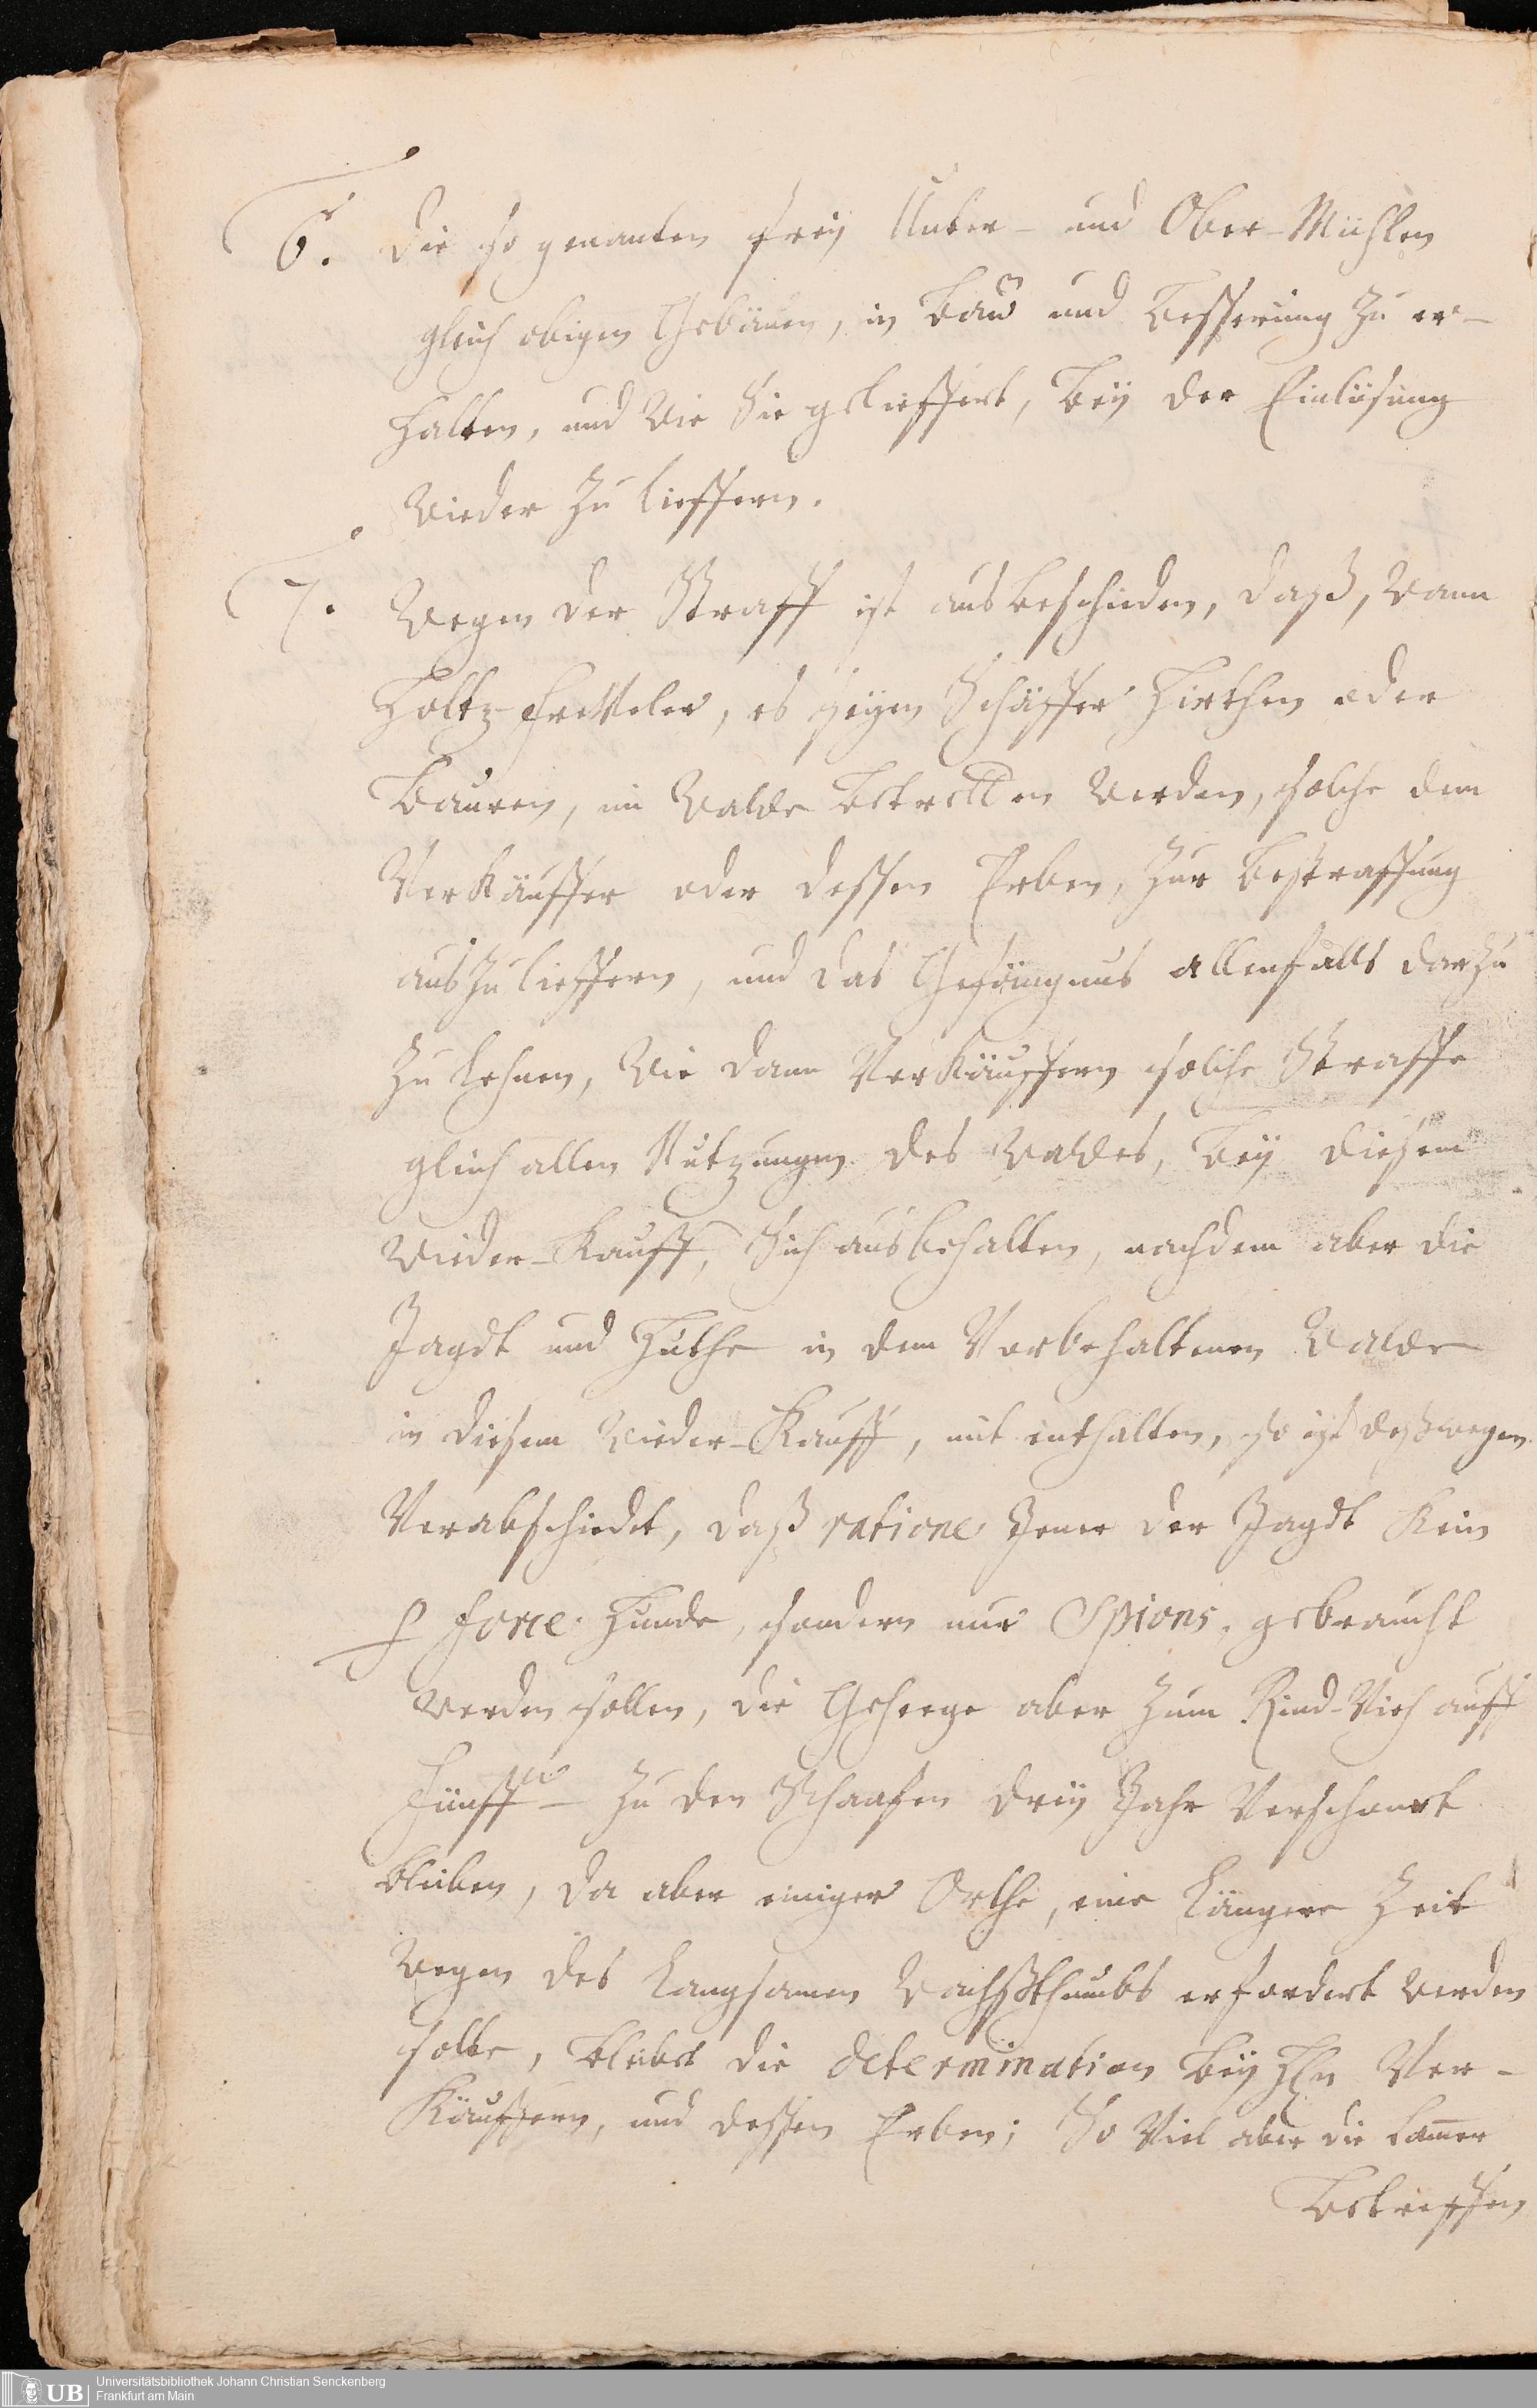 6. die so genanten frey Unter- und Ober-Mühlen
gleich obigen Gebäuen, in Bau und Besserung zu er-
halten, und wie sie gelieffert, bey der Einlösung
wieder zu lieffern.
7. Wegen der Straff ist ausbeschieden, daß, wann
Holtz-freveler, es seyen Schäffer Hirthen oder
Bauren, im Walde betretten werden, solche dem
Verkäuffer oder dessen Erben, zur bestraffung
auszulieffern, und das Gefängnus allenfalls darzu
zu lehnen, wie dann Verkäuffern solche Straffe
gleich allen Nutzungen des Waldes, bey diesem
wieder-Kauff, sich ausbehalten, nachdem aber die
Jagdt und Huthe in dem Vorbehaltenen Walde
in diesem wieder-Kauff, mit enthalten, so ist deßwegen
Verabschiedt, daß ratione Jener der Jagdt kein
p force Hunde, sondern nur Spions, gebraucht
werden sollen, die Geheege aber zum Rind-Vieh auff
Fünff- zu den Schaafen drey Jahr Verschonet
bleiben, da aber einiger Orthe, eine Längere Zeit
wegen des Langsamen Wachsthumbs erfordert werden
solte, bleibet die determination bey Hn Ver-
käuffern, und dessen Erben; So Viel aber die
betreffen
Universitätsbibliothek Johann Christian Senckenberg
Frankfurt am Main
UB